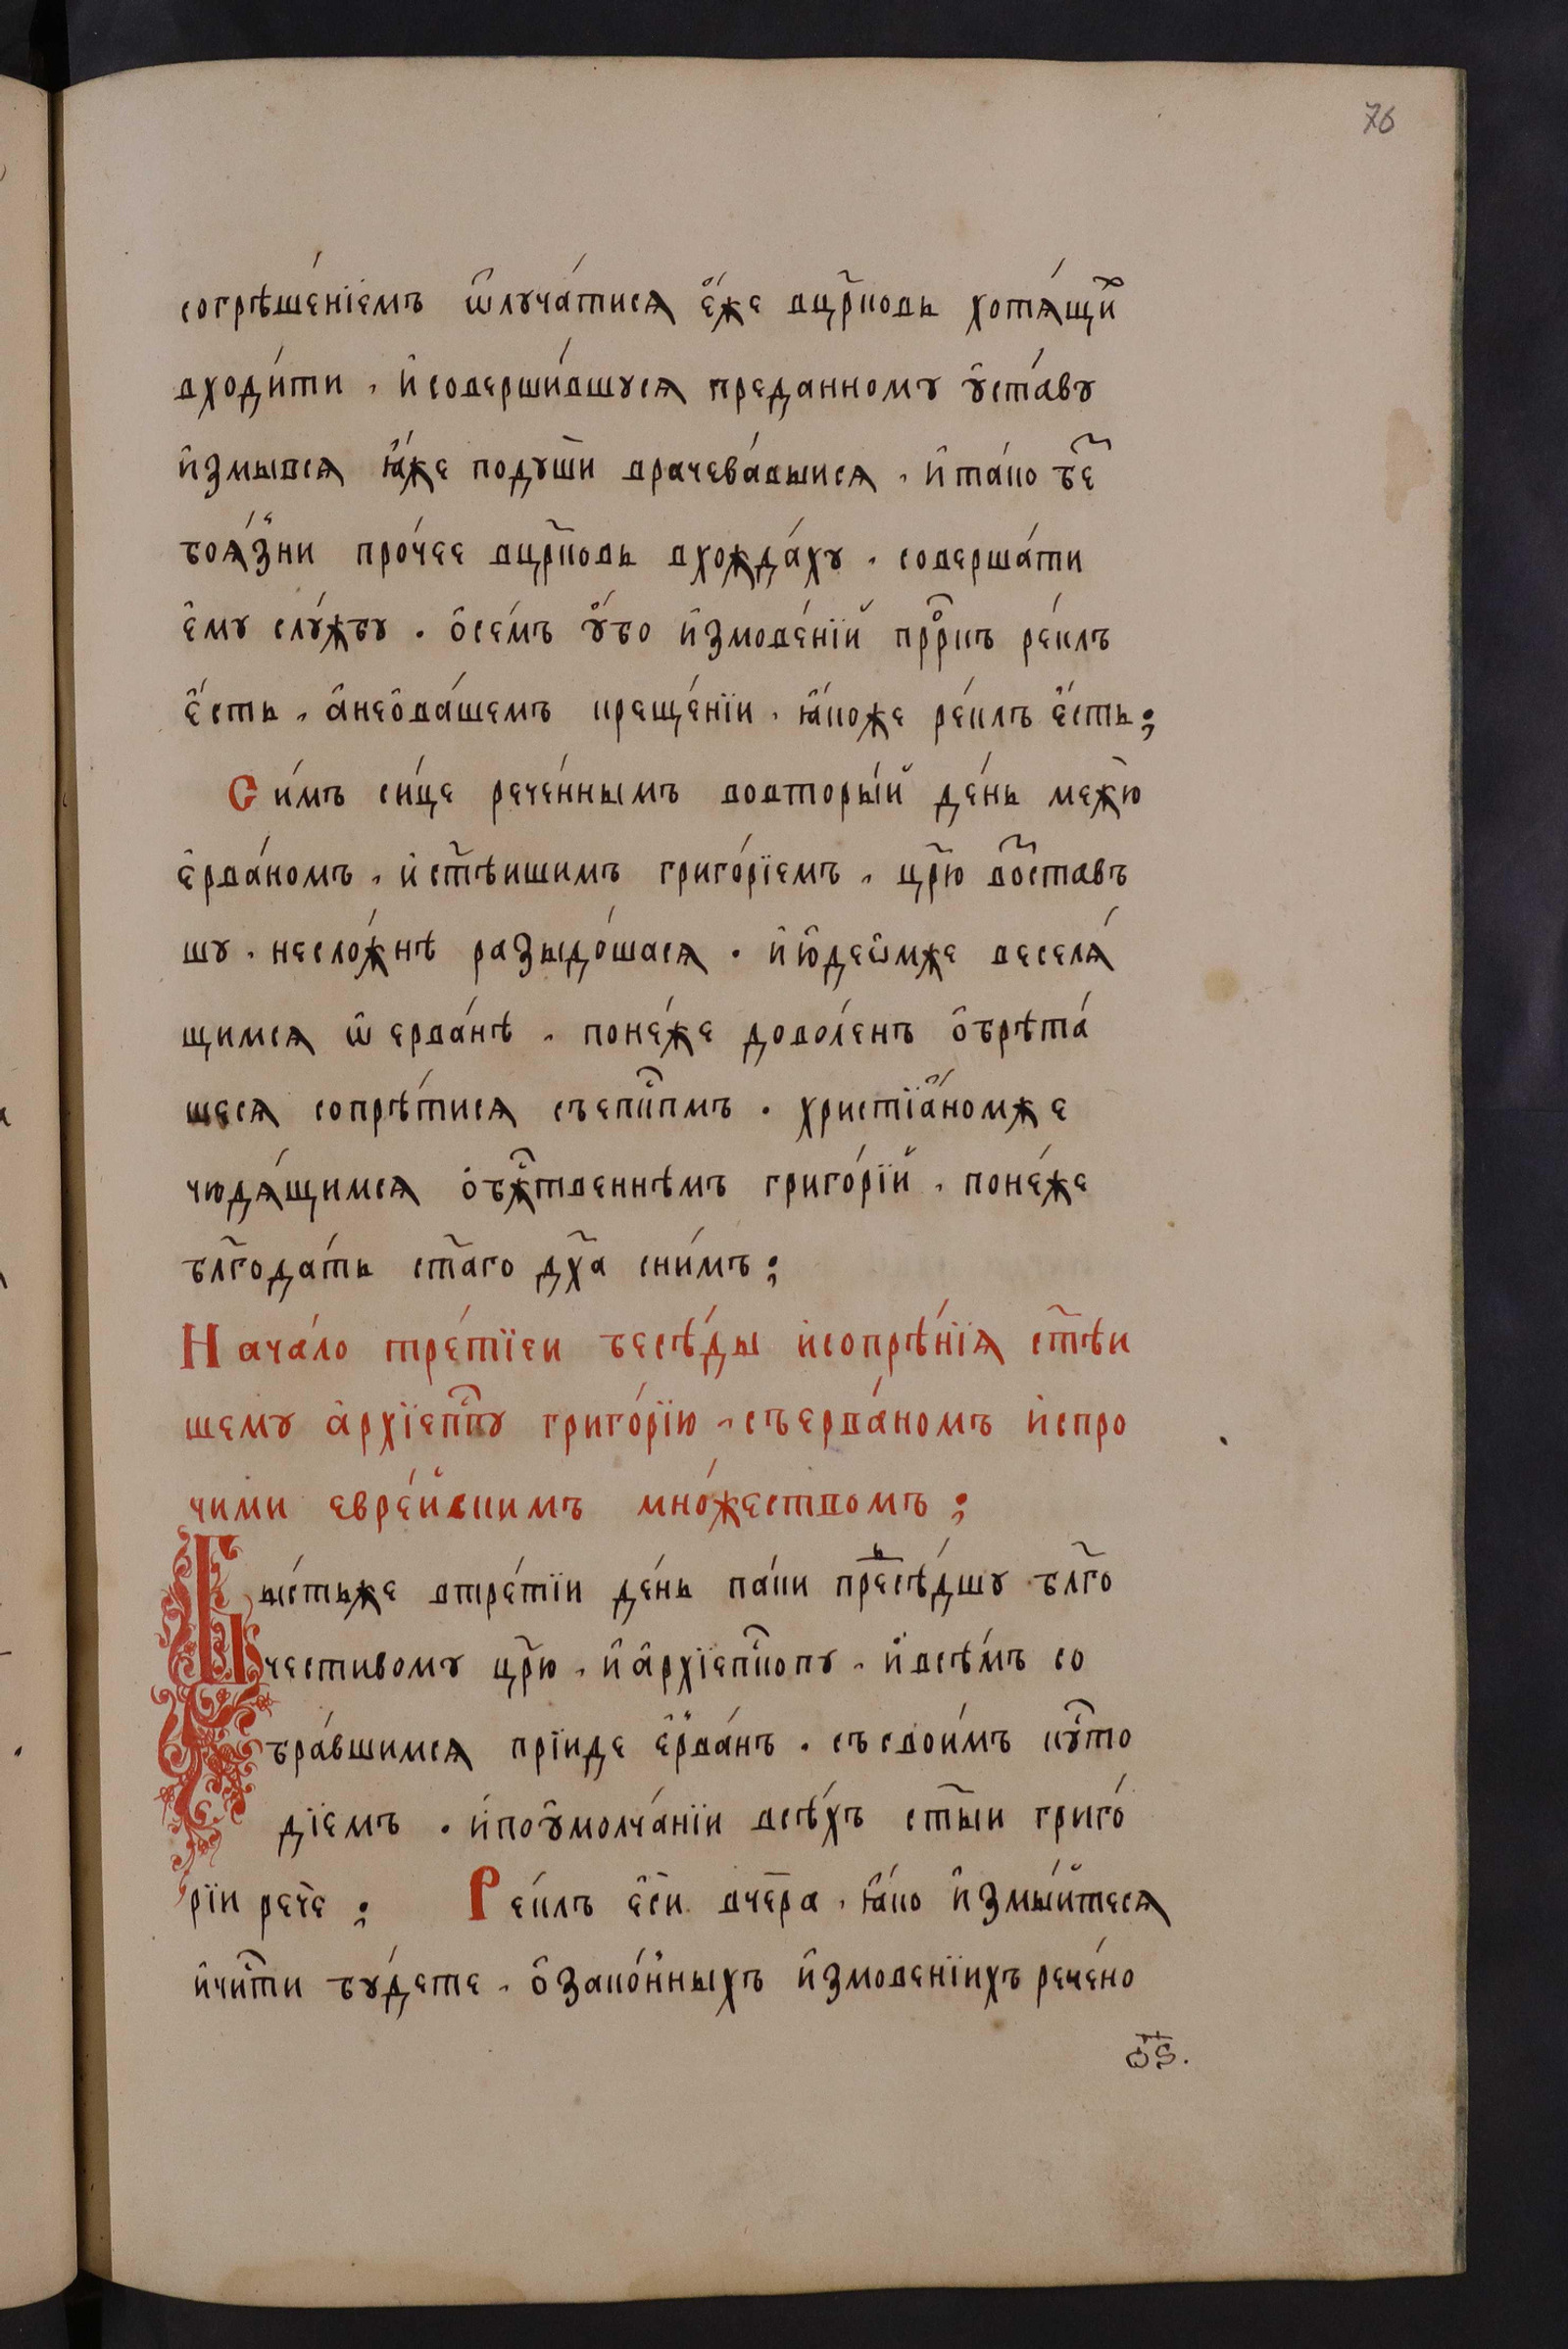 76
согрѣше́нїемъ ѿлуча́тисѧ є҆́же вцр҃ковь хотѧ́щїй
входи́ти , и҆соверши́вшусѧ преданному у҆ста́ву
и҆змывсѧ ю҆́же подуши врачева́вшисѧ , и҆та́ко бе
боѧ́зни про́чее вцр҃ковь вхожда́ху . соверша́ти
є҆му слу́жбу . ѻ҆се́мъ у҆́бо и҆змове́нїй прⷪ҇ркъ ре́клъ
є҆́сть , а҆неѻ҆ва́шемъ креще́нїи , ꙗ҆́коже ре́клъ є҆́сть ;
Си́мъ си́це рече́ннымъ вовторы́й де́нь межю
є҆рва́номъ , и҆ст҃ѣишимъ григо́рїемъ , цр҃ю воставъ
шу , несло́жнѣ разыдо́шасѧ . и҆ю҆деѡ҆мже веселѧ́
щимсѧ ѡ҆ ерва́нѣ , поне́же дово́ленъ ѻ҆брѣта́
шесѧ сопрѣ́тисѧ съепⷭ҇кпмъ . христїа҆́номже
чюдѧ́щимсѧ ѻбжⷭ҇твеннѣмъ григо́рїй , поне́же
бл҃года́ть ст҃аго дх҃а сни́мъ ;
Нача́ло тре́тїеи бесѣ́ды исопрѣ́нїѧ ст҃ѣи
шему а҆рхїепⷭ҇пу григо́рїю , съерва́номъ и҆спро
чими евре́йскимъ мно́жествомъ ;
Бы́стьже втре́тїи де́нь па́ки пресѣ́дшу бл҃го
честивому цр҃ю , и҆а҆рхїепⷭ҇копу , и҆всѣ́мъ со
бра́вшимсѧ прїиде є҆рва́нъ . съсвои́мъ куⷭ҇то
дїемъ . и҆поу҆молча́нїи всѣ́хъ ст҃ыи григо́
рїи рече ; Ре́клъ є҆си вчера , ꙗ҆́ко и҆змы́йтесѧ
и҆чиⷭ҇ти бу́дете , ѻ҆зако́нныхъ и҆змовенїихъ рече́но
ѻ҃ѕ .